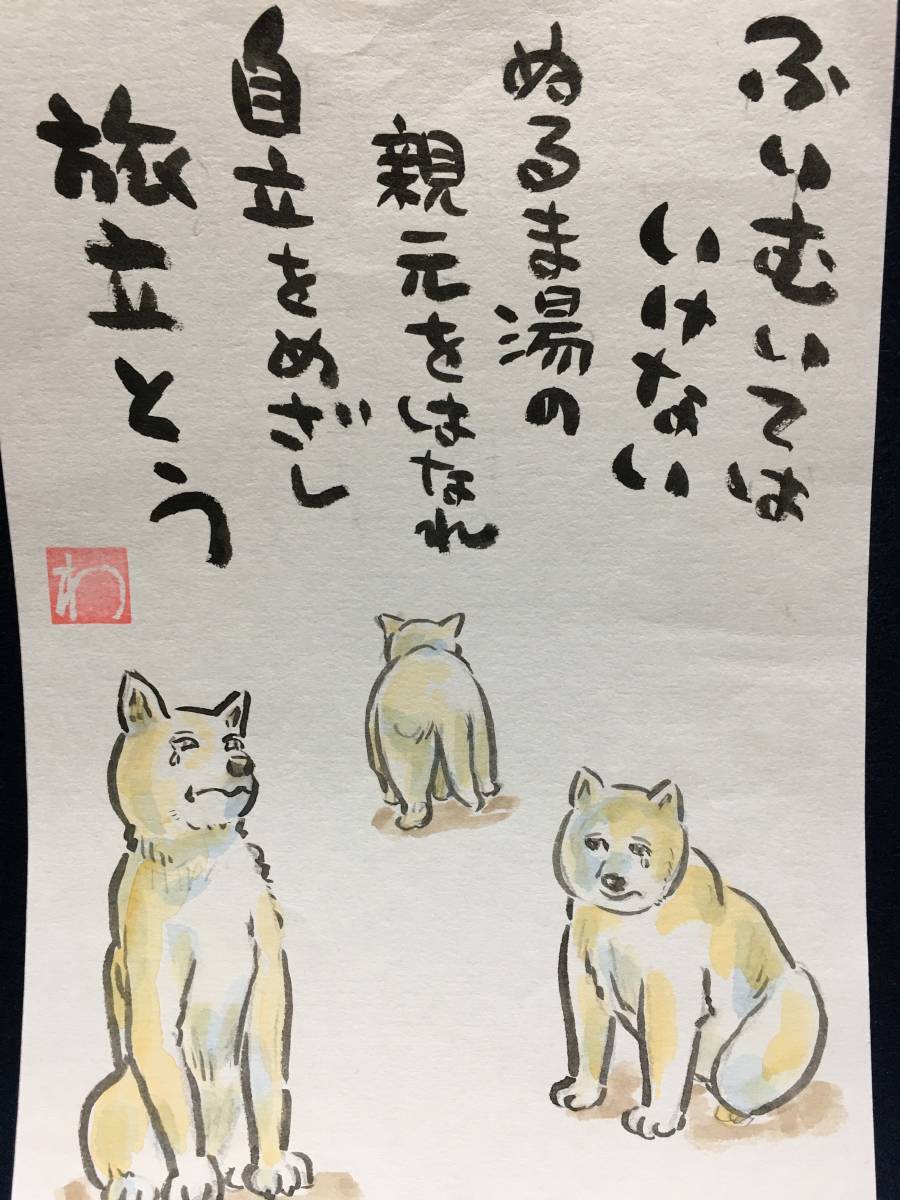 ふりむいては
いけない
ぬるま湯の
親元をはなれ
自立をめざし
旅立とう
わ